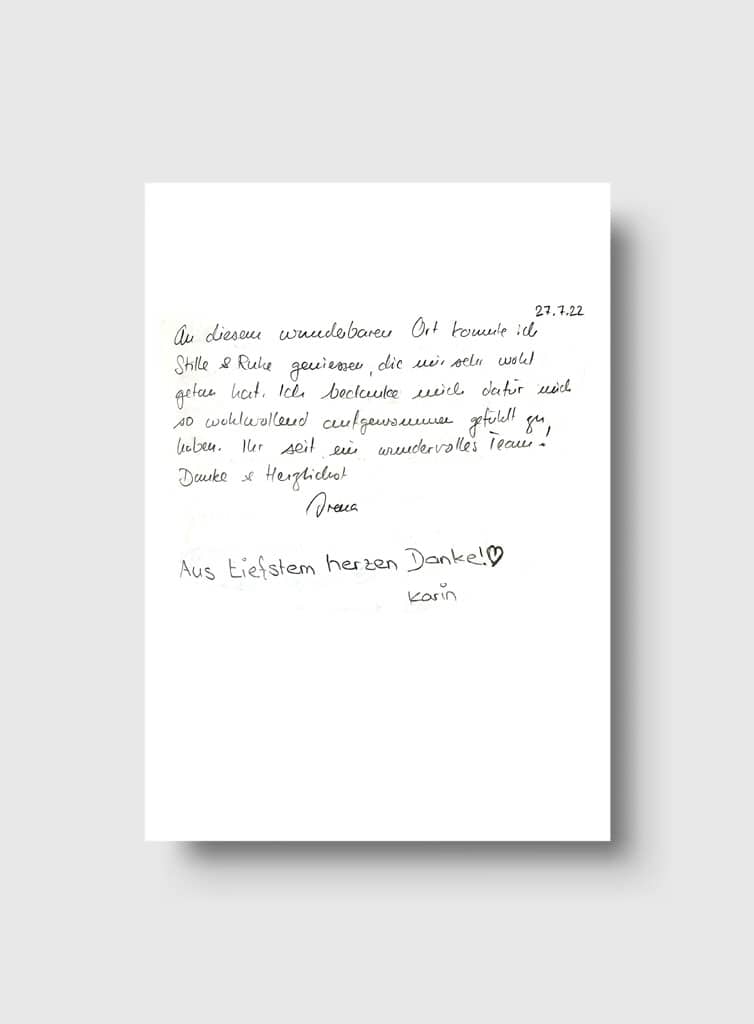 27.7.22
An diesem wunderbaren Ort konnte ich
Stille & Ruhe geniessen, die mir sehr wohl
getan hat. Ich bedanke mich dafür mich
so wohlwollend aufgenommen gefühlt zu
haben. Ihr seit ein wundervolles Team!
Danke & Herzlichst
Irena
Aus tiefstem herzen Danke!♡
Karin